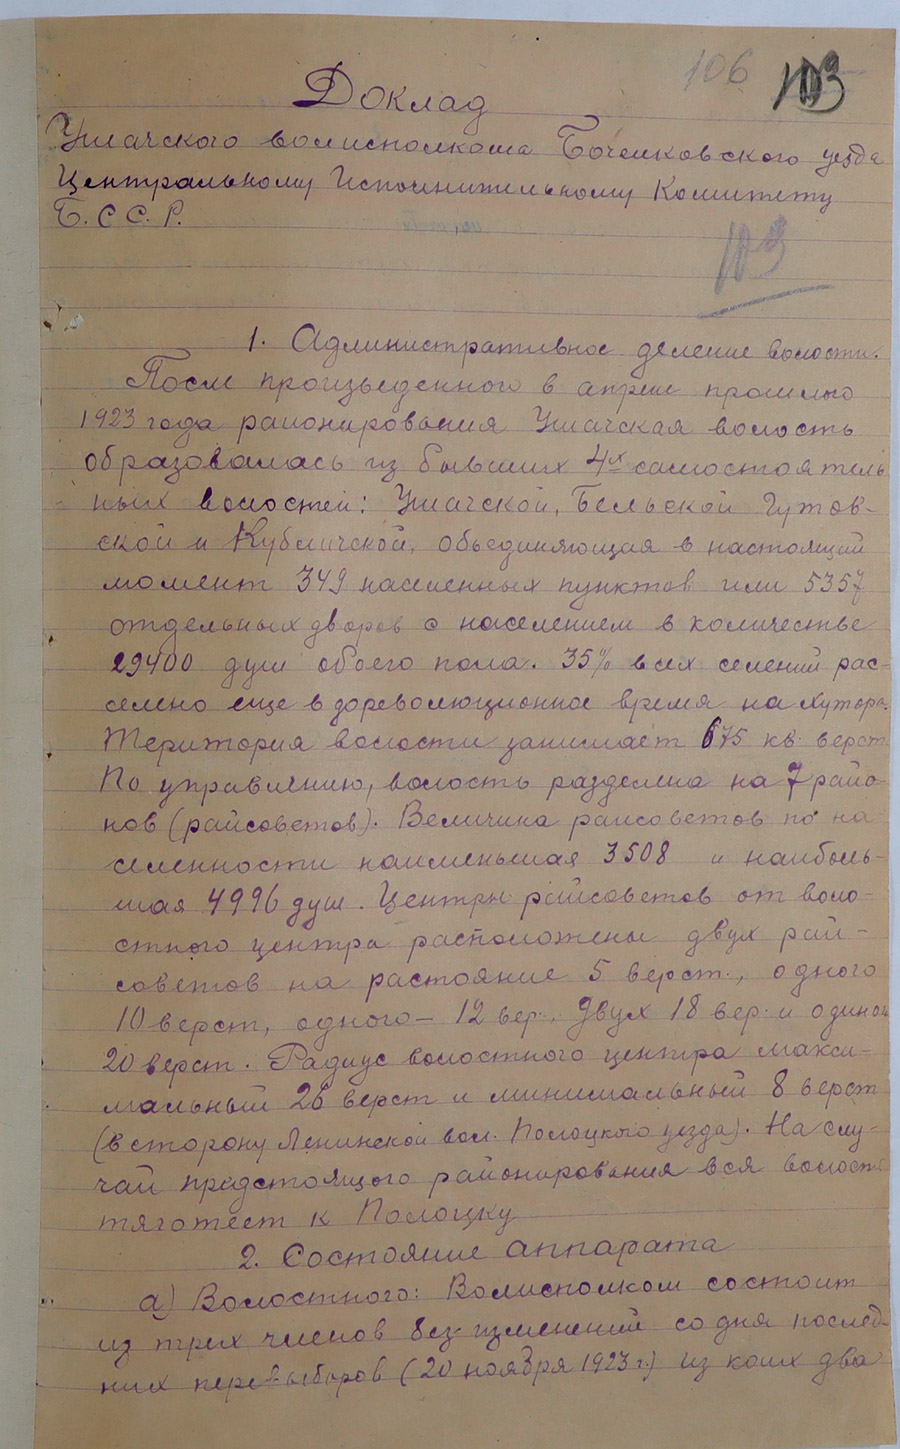 106 103
Доклад
Ушачского волисполкома Бочейковского уезда
Центральному Исполнительному Комитету
Б.С.С.Р.
103
1. Административное деление волости.
После произведенного в апреле прошлого
1923 года районирования Ушачская волость
образовалась из бывших 4х самостоятель
ных волостей: Ушачской, Бельской Гутов-
ской и Кубличской, объединяющая в настоящий
момент 349 населенных пунктов или 5357
отдельных дворов с населением в количестве
29400 душ обоего пола. 35% всех селений рас-
селено еще в дореволюционное время на хутора.
Територия волости занимает 675 кв. верст
По управлению, волость разделена на 7 райо-
нов (райсоветов). Величина райсоветов по на
селенности наименьшая 3508 и наиболь-
шая 4996 душ. Центры райсоветов от воло-
стного центра расположены двух рай-
советов на растояние 5 верст., одного
10 верст, одного – 12 вер., двух 18 вер. и одного
20 верст. Радиус волостного центра макси-
мальный 26 верст и минимальный 8 верст
(в сторону Ленинской вол. Полоцкого уезда). На слу-
чай предстоящего районирования вся волость
тяготеет к Полоцку
2. Состояние аппарата
а) Волостного: Волисполком состоит
из трех членов без изменений со дня послед-
них перевыборов (20 ноября 1923 г.) из коих два